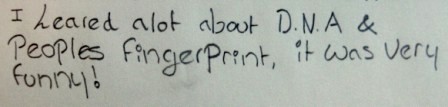 I Leared alot about D.N.A &
Peoples fingerprint, it was very
funny!